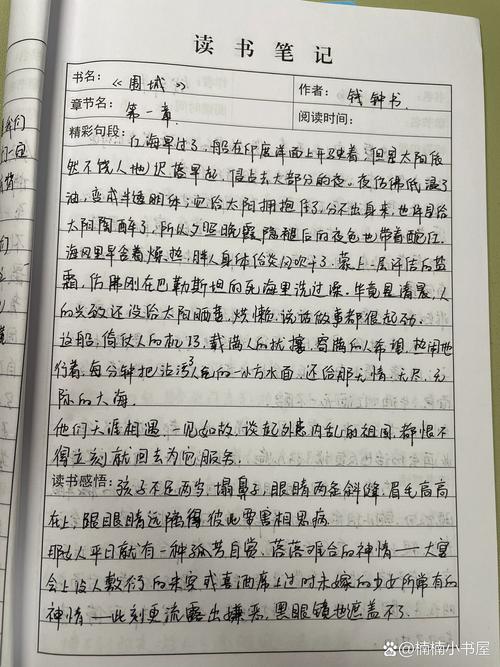 读书笔记
书名：《围城》 作者：钱钟书
章节名：第一章 阅读时间：
精彩句段：红海早过了，船在印度洋面上开驶着，但是太阳依
然不饶人地迟落早起，侵占去大部分的夜。夜仿佛纸浸了
油，变成半透明体；它给太阳拥抱住了，分不出身来，也许是给
太阳陶醉了，所以夕照晚霞隐褪后的夜色也带着酡红。
海风里早含着燥热，胖人身体给炎风吹干了，蒙上一层汗结的盐
霜，仿佛刚在巴勒斯坦的死海里洗过澡。毕竟是清晨，人
的兴致还没给太阳晒萎，烘懒，说话做事都很起劲。
这船，倚仗人的机巧，载满人的扰攘，寄满人的希望，热闹地
行着，每分钟把沾污了人气的一小方水面，还给那无情、无尽、无
际的大海。
他们天涯相遇，一见如故，谈起外患内乱的祖国，都恨不
得立刻就回去为它服务。
读书感悟：孩子不足两岁，塌鼻子，眼睛两条斜缝，眉毛高高
在上，跟眼睛远隔得彼此要害相思病。
那女人平日就有一种孤芳自赏、落落难合的神情——大宴
会上没人敷衍的来宾或喜酒席上过时未嫁的少女所常有的
神情——此刻更流露出嫌恶，黑眼镜也遮盖不了。
@楠楠小书屋